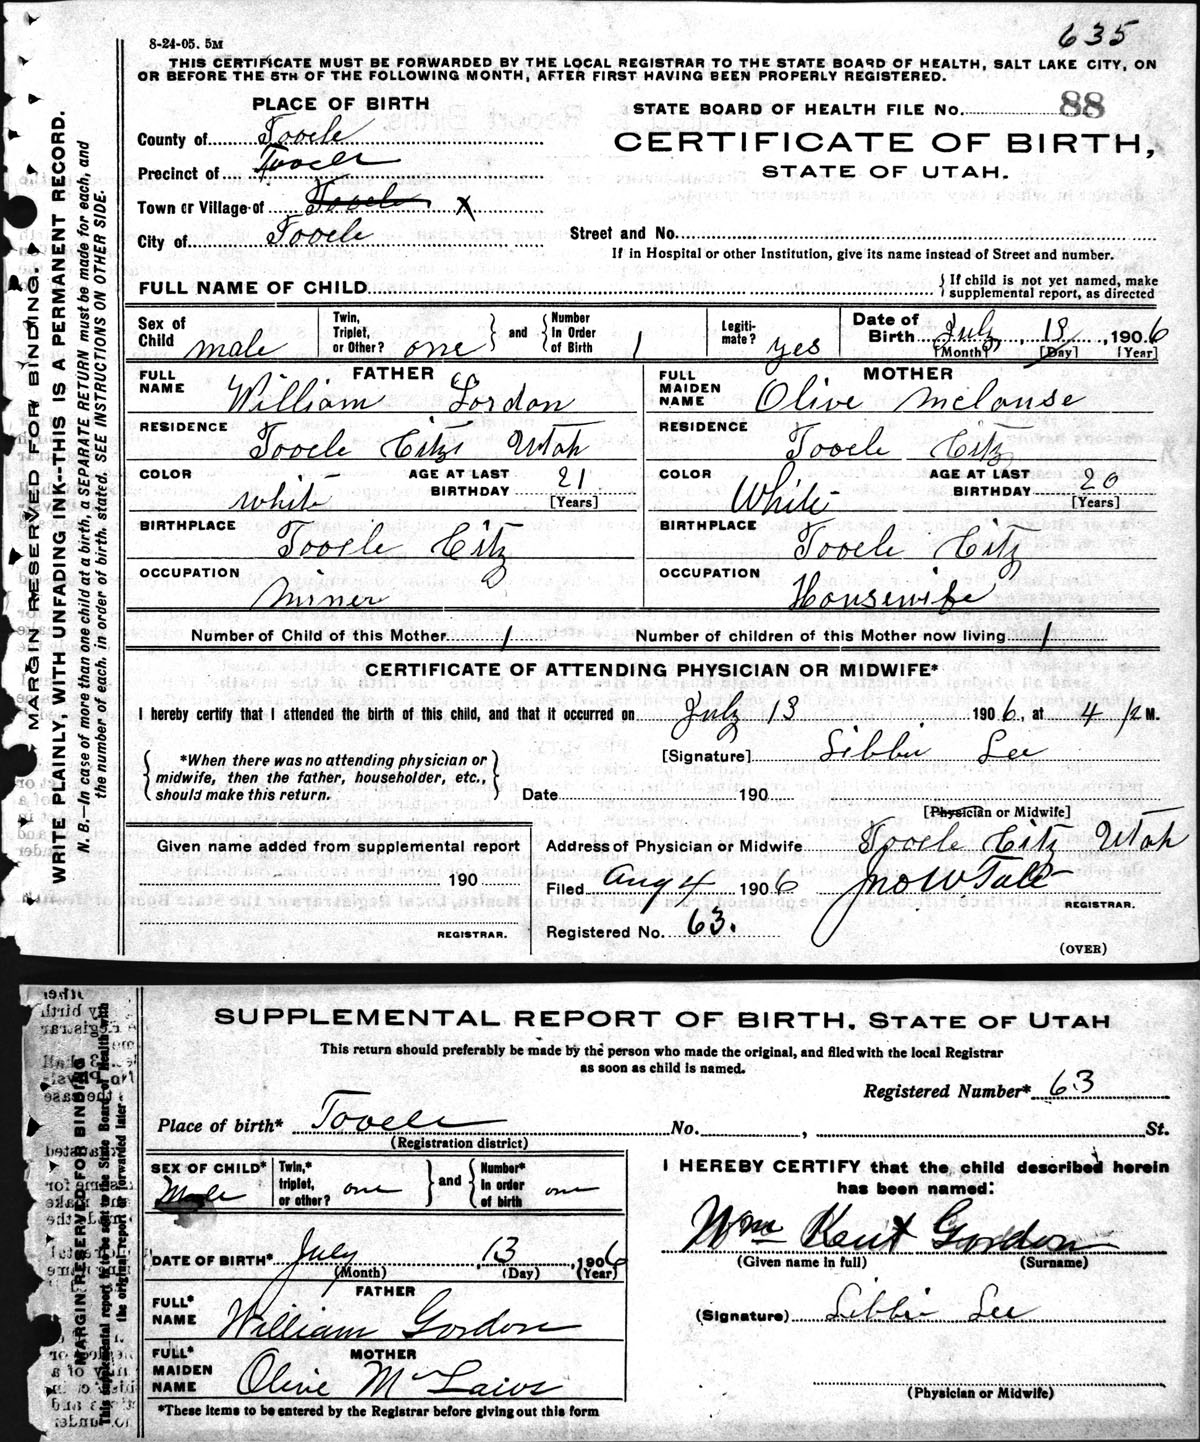 635
8-24-05. 5M
THIS CERTIFICATE MUST BE FORWARDED BY THE LOCAL REGISTRAR TO THE STATE BOARD OF HEALTH, SALT LAKE CITY, ON
OR BEFORE THE 5TH OF THE FOLLOWING MONTH, AFTER FIRST HAVING BEEN PROPERLY REGISTERED.
MARGIN RESERVED FOR BINDING.
WRITE PLAINLY, WITH UNFADING INK--THIS IS A PERMANENT RECORD.
N. B.—In case of more than one child at a birth, a SEPARATE RETURN must be made for each, and
the number of each, in order of birth, stated. SEE INSTRUCTIONS ON OTHER SIDE.
PLACE OF BIRTH
County of Tooele
Precinct of Tooele
Town or Village of Tooele X
City of Tooele
STATE BOARD OF HEALTH FILE No. 88
CERTIFICATE OF BIRTH,
STATE OF UTAH.
Street and No.
If in Hospital or other Institution, give its name instead of Street and number.
FULL NAME OF CHILD
If child is not yet named, make
supplemental report, as directed
Sex of Child male
Twin, Triplet, or Other? one
and
Number In Order of Birth 1
Legitimate? yes
Date of Birth July 13, 1906
[Month] [Day] [Year]
FATHER
FULL NAME William Gordon
RESIDENCE Tooele City Utah
COLOR white AGE AT LAST BIRTHDAY 21 [Years]
BIRTHPLACE Tooele City
OCCUPATION Miner
MOTHER
FULL MAIDEN NAME Olive
RESIDENCE Tooele City
COLOR White AGE AT LAST BIRTHDAY 20 [Years]
BIRTHPLACE Tooele City
OCCUPATION Housewife
Number of Child of this Mother 1 Number of children of this Mother now living 1
CERTIFICATE OF ATTENDING PHYSICIAN OR MIDWIFE*
I hereby certify that I attended the birth of this child, and that it occurred on July 13 1906, at 4 M.
*When there was no attending physician or
midwife, then the father, householder, etc.,
should make this return.
[Signature] Libbie Lee
Date 190
[Physician or Midwife]
Given name added from supplemental report
190
REGISTRAR.
Address of Physician or Midwife Tooele City Utah
Filed Aug 4 1906 Jno W Tate
REGISTRAR.
Registered No. 63.
(OVER)
MARGIN RESERVED FOR BINDING
This supplemental report is to be sent to the State Board of Health with
the original report or forwarded later
SUPPLEMENTAL REPORT OF BIRTH. STATE OF UTAH
This return should preferably be made by the person who made the original, and filed with the local Registrar
as soon as child is named.
Registered Number* 63
Place of birth* Tooele No. , St.
(Registration district)
SEX OF CHILD* Male
Twin,* triplet, or other? one
and
Number* In order of birth one
DATE OF BIRTH* July 13, 1906
(Month) (Day) (Year)
FATHER
FULL* NAME William Gordon
MOTHER
FULL* MAIDEN NAME Olive McLaws
*These items to be entered by the Registrar before giving out this form
I HEREBY CERTIFY that the child described herein
has been named:
Wm Kent Gordon
(Given name in full) (Surname)
(Signature) Libbie Lee
(Physician or Midwife)